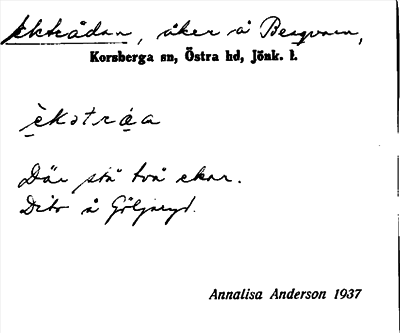 Ekträdan, åker å Bergvara,
Korsberga sn, Östra hd, Jönk. l.
èkətrá̱a
Där stå två ekar.
Dito å Göljaryd.
Annalisa Anderson 1937